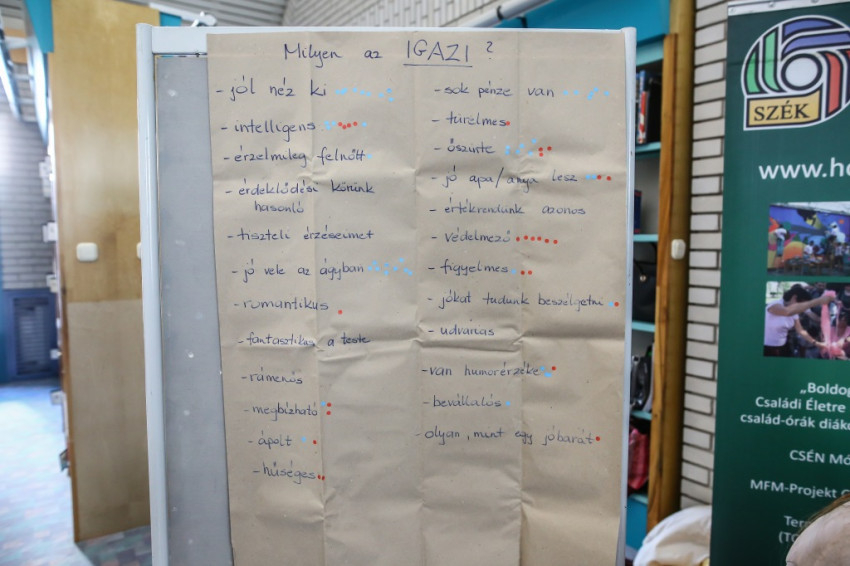 Milyen az IGAZI?
- jól néz ki
- intelligens
- érzelmileg felnőtt
- érdeklődési körünk
hasonló
- tiszteli érzéseimet
- jó vele az ágyban
- romantikus
- fantasztikus a teste
- rámenős
- megbízható
- ápolt
- hűséges
- sok pénze van
- türelmes
- őszinte
- jó apa/anya lesz
- értékrendünk azonos
- védelmező
- figyelmes
- jókat tudunk beszélgetni
- udvarias
- van humorérzéke
- bevállalós
- olyan, mint egy jóbarát
SZÉK
www.ho
„Boldog
Családi Életre
család-órák diáku
CSÉN Mó
MFM-Projekt
Ter
(TC